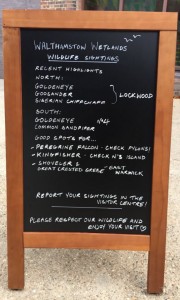 WALTHAMSTOW WETLANDS
WILDLIFE SIGHTINGS
RECENT HIGHLIGHTS
NORTH:
GOLDENEYE
GOOSANDER
SIBERIAN CHIFFCHAFF
LOCKWOOD
SOUTH:
GOLDENEYE Nº4
COMMON SANDPIPER
GOOD SPOTS FOR...
- PEREGRINE FALCON - CHECK PYLONS!
- KINGFISHER - CHECK Nº5 ISLAND
- SHOVELER &
GREAT CRESTED GREBE - EAST
WARWICK
REPORT YOUR SIGHTINGS IN THE
VISITOR CENTRE!
PLEASE RESPECT OUR WILDLIFE AND
ENJOY YOUR VISIT